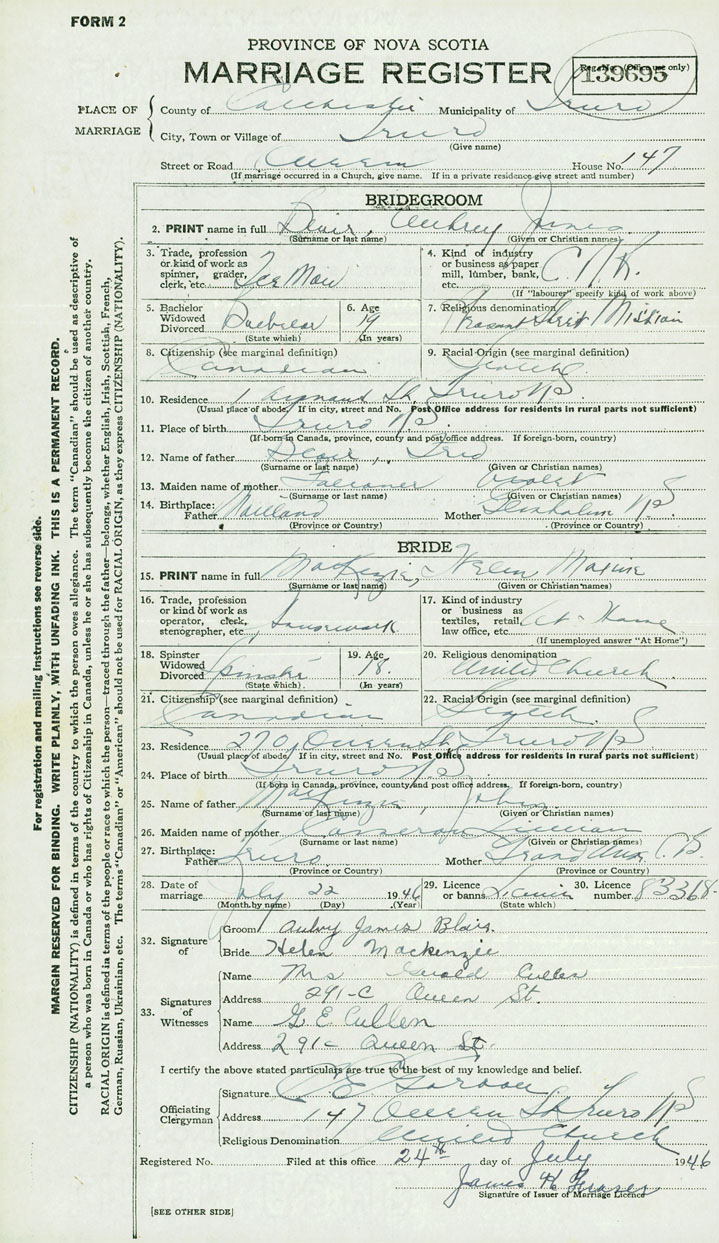 FORM 2
PROVINCE OF NOVA SCOTIA
MARRIAGE REGISTER
Reg. No. (Office use only)
139695
PLACE OF MARRIAGE
County of Colchester Municipality of Truro
City, Town or Village of Truro
(Give name)
Street or Road Queen House No. 147
(If marriage occurred in a Church, give name. If in a private residence give street and number)
BRIDEGROOM
2. PRINT name in full Blair, Aubrey James
(Surname or last name) (Given or Christian names)
3. Trade, profession or kind of work as spinner, grader, clerk, etc.
4. Kind of industry or business as paper mill, lumber, bank, etc. C.N.R.
(If "labourer" specify kind of work above)
5. Bachelor Widowed Divorced Bachelor
(State which)
6. Age 19
(In years)
7. Religious denomination Mission
8. Citizenship (see marginal definition) Canadian
9. Racial Origin (see marginal definition) Scotch
10. Residence 1 St. Truro NS
(Usual place of abode. If in city, street and No. Post Office address for residents in rural parts not sufficient)
11. Place of birth Truro NS
(If born in Canada, province, county and post office address. If foreign-born, country)
12. Name of father Blair, Fred
(Surname or last name) (Given or Christian names)
13. Maiden name of mother Faulkner Violet
(Surname or last name) (Given or Christian names)
14. Birthplace: Father Maitland Mother NS
(Province or Country) (Province or Country)
BRIDE
15. PRINT name in full MacKenzie, Helen Maxine
(Surname or last name) (Given or Christian names)
16. Trade, profession or kind of work as operator, clerk, stenographer, etc. Housework
17. Kind of industry or business as textiles, retail, law office, etc. At Home
(If unemployed answer "At Home")
18. Spinster Widowed Divorced Spinster
(State which)
19. Age 18.
(In years)
20. Religious denomination United Church
21. Citizenship (see marginal definition) Canadian
22. Racial Origin (see marginal definition) Scotch
23. Residence 270 Queen St. Truro NS
(Usual place of abode. If in city, street and No. Post Office address for residents in rural parts not sufficient)
24. Place of birth Truro NS
(If born in Canada, province, county and post office address. If foreign-born, country)
25. Name of father MacKenzie, John
(Surname or last name) (Given or Christian names)
26. Maiden name of mother Cameron Lillian
(Surname or last name) (Given or Christian names)
27. Birthplace: Father Truro Mother Grand C.B.
(Province or Country) (Province or Country)
28. Date of marriage July 22 1946
(Month by name) (Day) (Year)
29. Licence or banns Licence
(State which)
30. Licence number 83368
32. Signature of
Groom Aubry James Blair.
Bride Helen Mackenzie
33. Signatures of Witnesses
Name Mrs Gerald Cullen
Address 291-C Queen St.
Name G. E. Cullen
Address 291- Queen St.
I certify the above stated particulars are true to the best of my knowledge and belief.
Officiating Clergyman
Signature
Address 147 Queen St Truro NS
Religious Denomination United Church
Registered No. Filed at this office 24th day of July 1946
James H Fraser
Signature of Issuer of Marriage Licence
[SEE OTHER SIDE]
For registration and mailing instructions see reverse side.
MARGIN RESERVED FOR BINDING. WRITE PLAINLY, WITH UNFADING INK. THIS IS A PERMANENT RECORD.
CITIZENSHIP (NATIONALITY) is defined in terms of the country to which the person owes allegiance. The term "Canadian" should be used as descriptive of
a person who was born in Canada or who has rights of Citizenship in Canada, unless he or she has subsequently become the citizen of another country.
RACIAL ORIGIN is defined in terms of the people or race to which the person—traced through the father—belongs, whether English, Irish, Scottish, French,
German, Russian, Ukrainian, etc. The terms "Canadian" or "American" should not be used for RACIAL ORIGIN, as they express CITIZENSHIP (NATIONALITY).